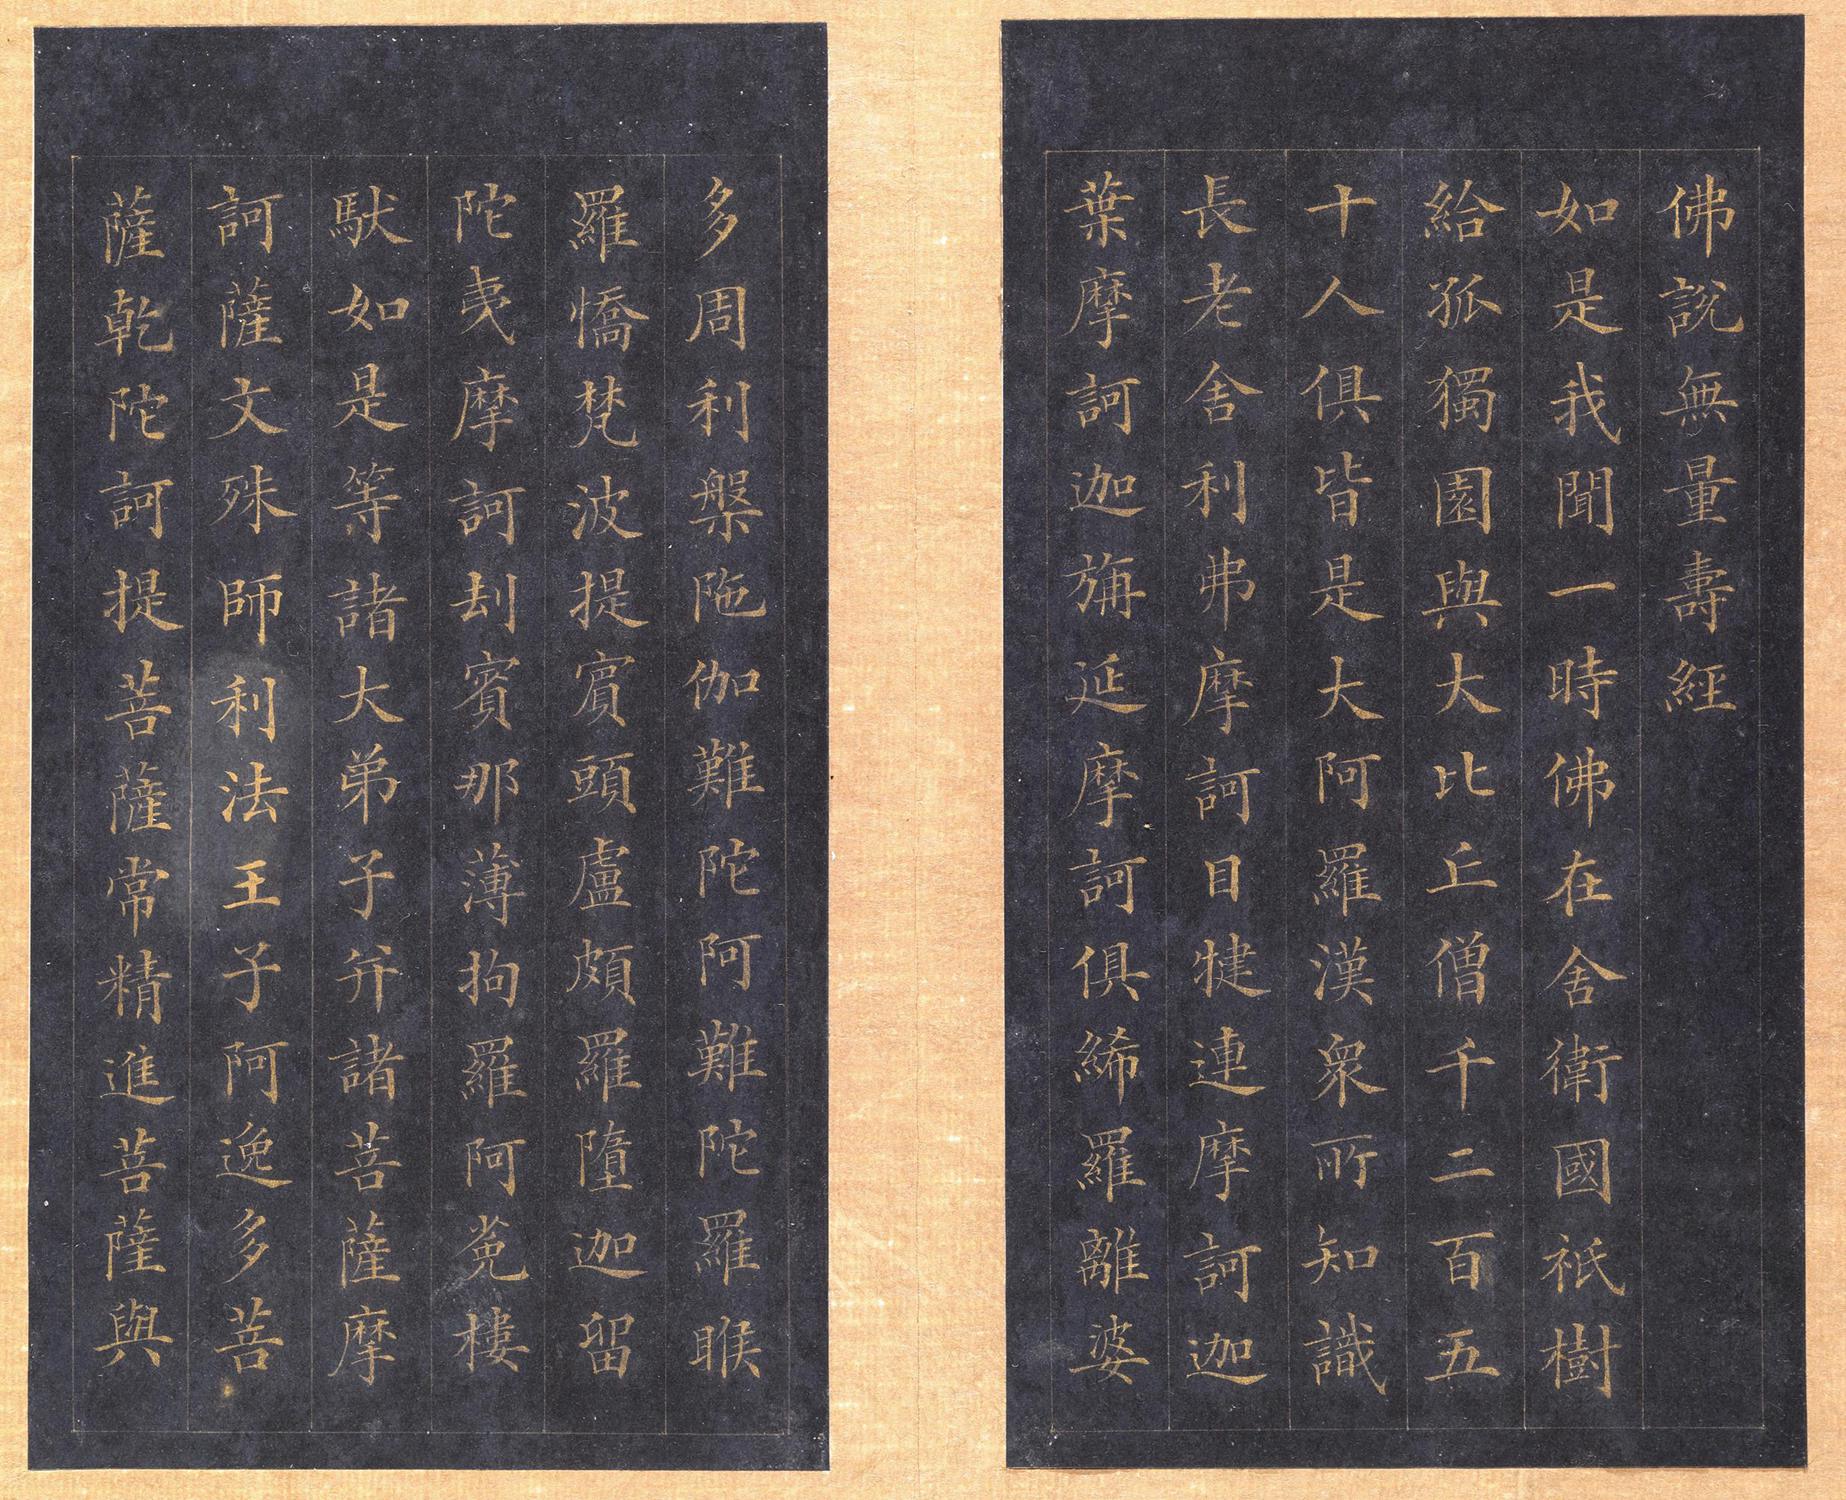 佛說無量壽經
如是我聞一時佛在舍衛國祇樹
給孤獨園與大比丘僧千二百五
十人俱皆是大阿羅漢衆所知識
長老舍利弗摩訶目犍連摩訶迦
葉摩訶迦旃延摩訶俱絺羅離婆
多周利槃陁伽難陀阿難陀羅睺
羅憍梵波提賔頭盧頗羅墮迦留
陀夷摩訶刦賓那薄拘羅阿㝹樓
馱如是等諸大弟子并諸菩薩摩
訶薩文殊師利法王子阿逸多菩
薩乾陀訶提菩薩常精進菩薩與